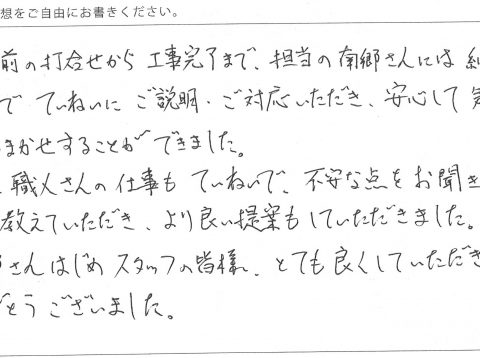 想をご自由にお書きください。
前の打合せから工事完了まで、担当の南郷さんには
で ていねいに ご説明・ご対応いただき、安心して
まかせすることができました。
職人さんの仕事も ていねいで、不安な点をお聞き
教えていただき、より良い提案もしていただきました。
さんはじめ スタッフの皆様、とても良くしていただき
とうございました。